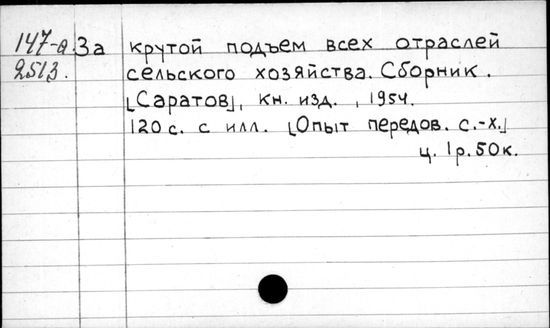 147-а За крутой подъем всех отраслей
2513. сельского хозяйства. Сборник.
[Саратов], кн. изд. , 1954.
120 с. с илл. [Опыт передов. с.-х.]
ц. 1р.50к.